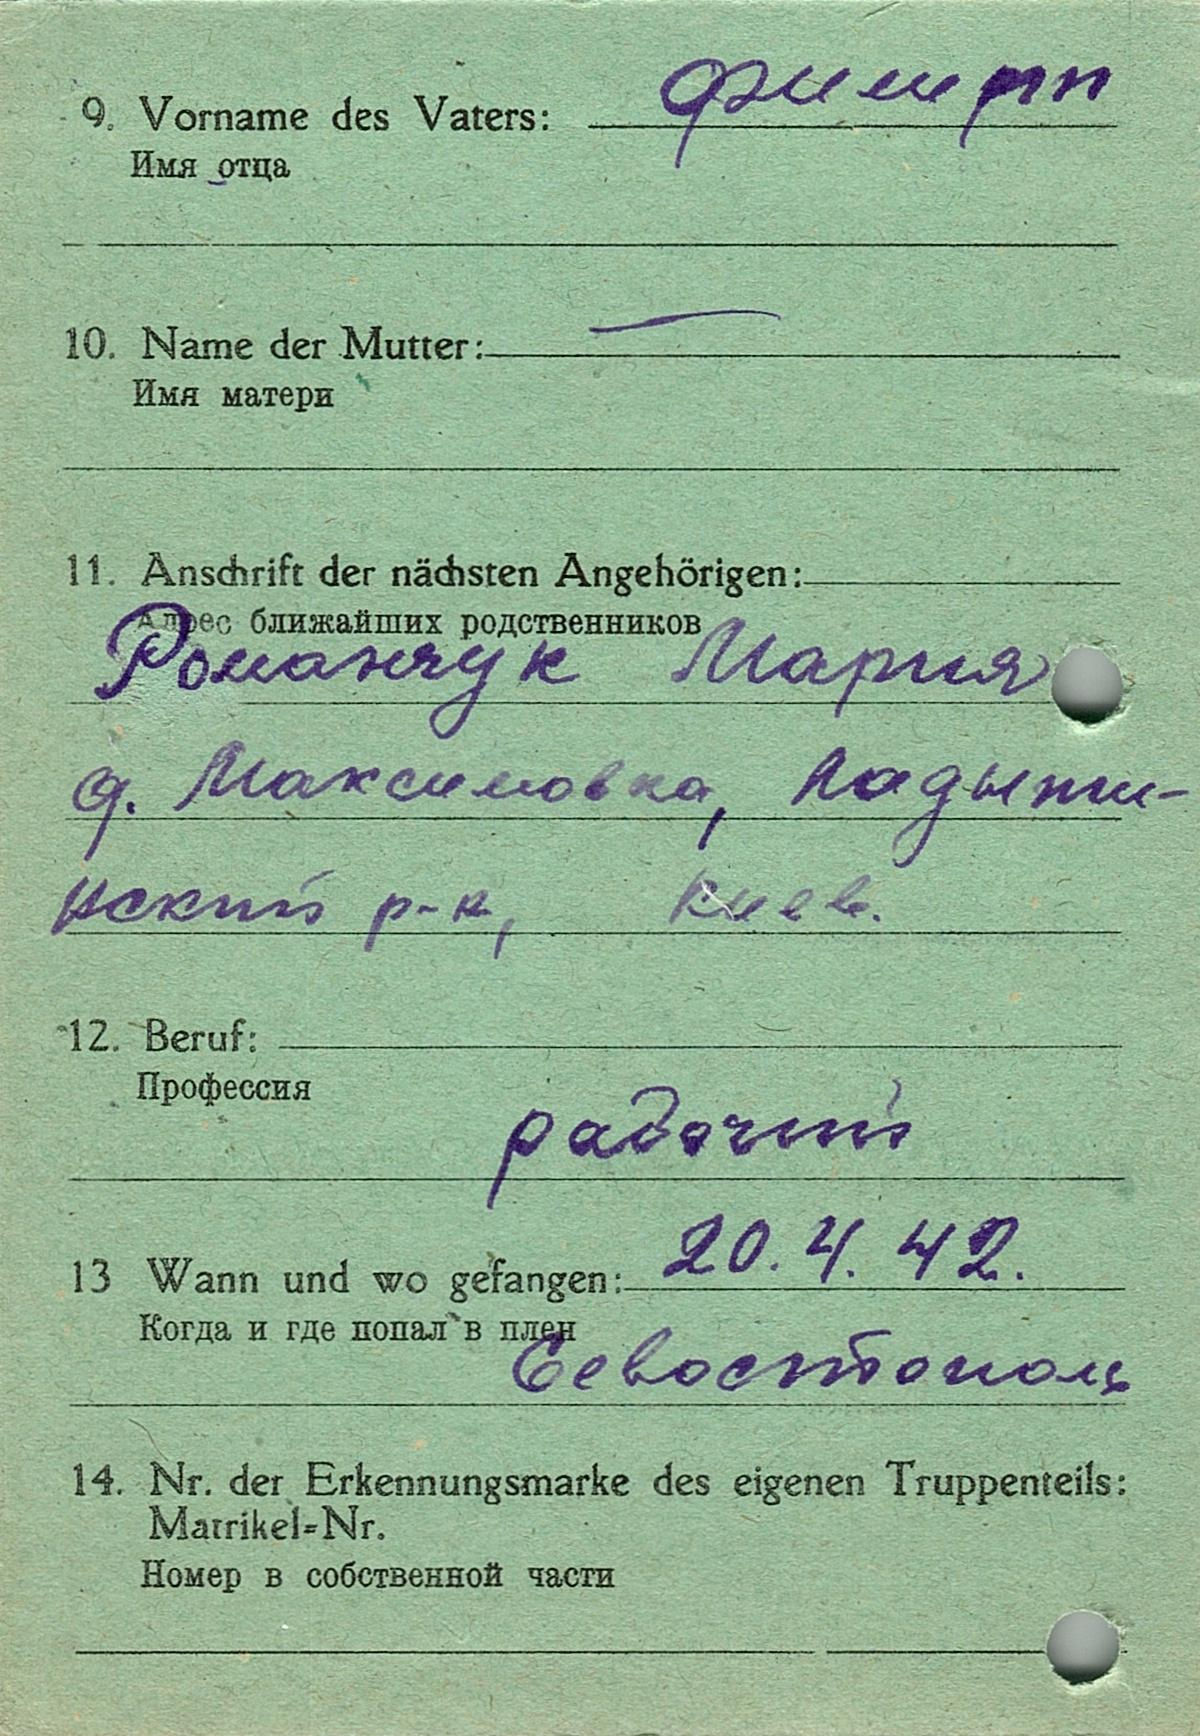 9. Vorname des Vaters: Филипп
Имя отца
10. Name der Mutter: —
Имя матери
11. Anschrift der nächsten Angehörigen:
Адрес ближайших родственников
Романчук Мария
д. Максимовка, Ладыжи-
нский р-н, Киев.
12. Beruf:
Профессия
рабочий
13 Wann und wo gefangen: 20.4.42.
Когда и где попал в плен
Севостополь
14. Nr. der Erkennungsmarke des eigenen Truppenteils:
Matrikel=Nr.
Номер в собственной части